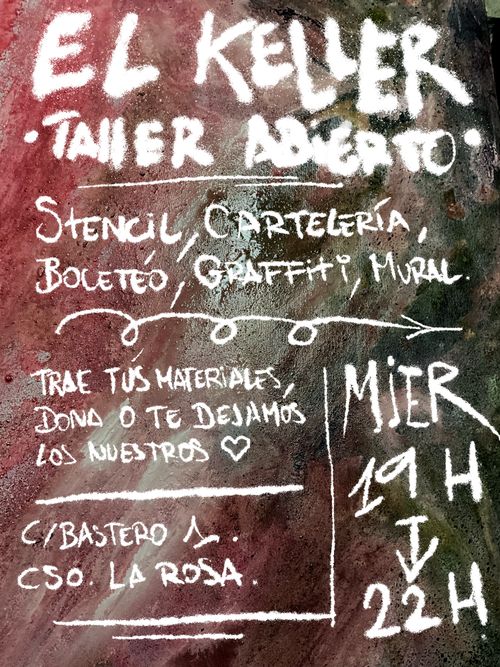 EL KELLER
·TALLER ABIERTO·
STENCIL, CARTELERÍA,
BOCETEO, GRAFFITI, MURAL.
TRAE TUS MATERIALES,
DONA O TE DEJAMOS
LOS NUESTROS ♡
C/BASTERO 1.
CSO. LA ROSA.
MIER
19 H
↓
22 H.